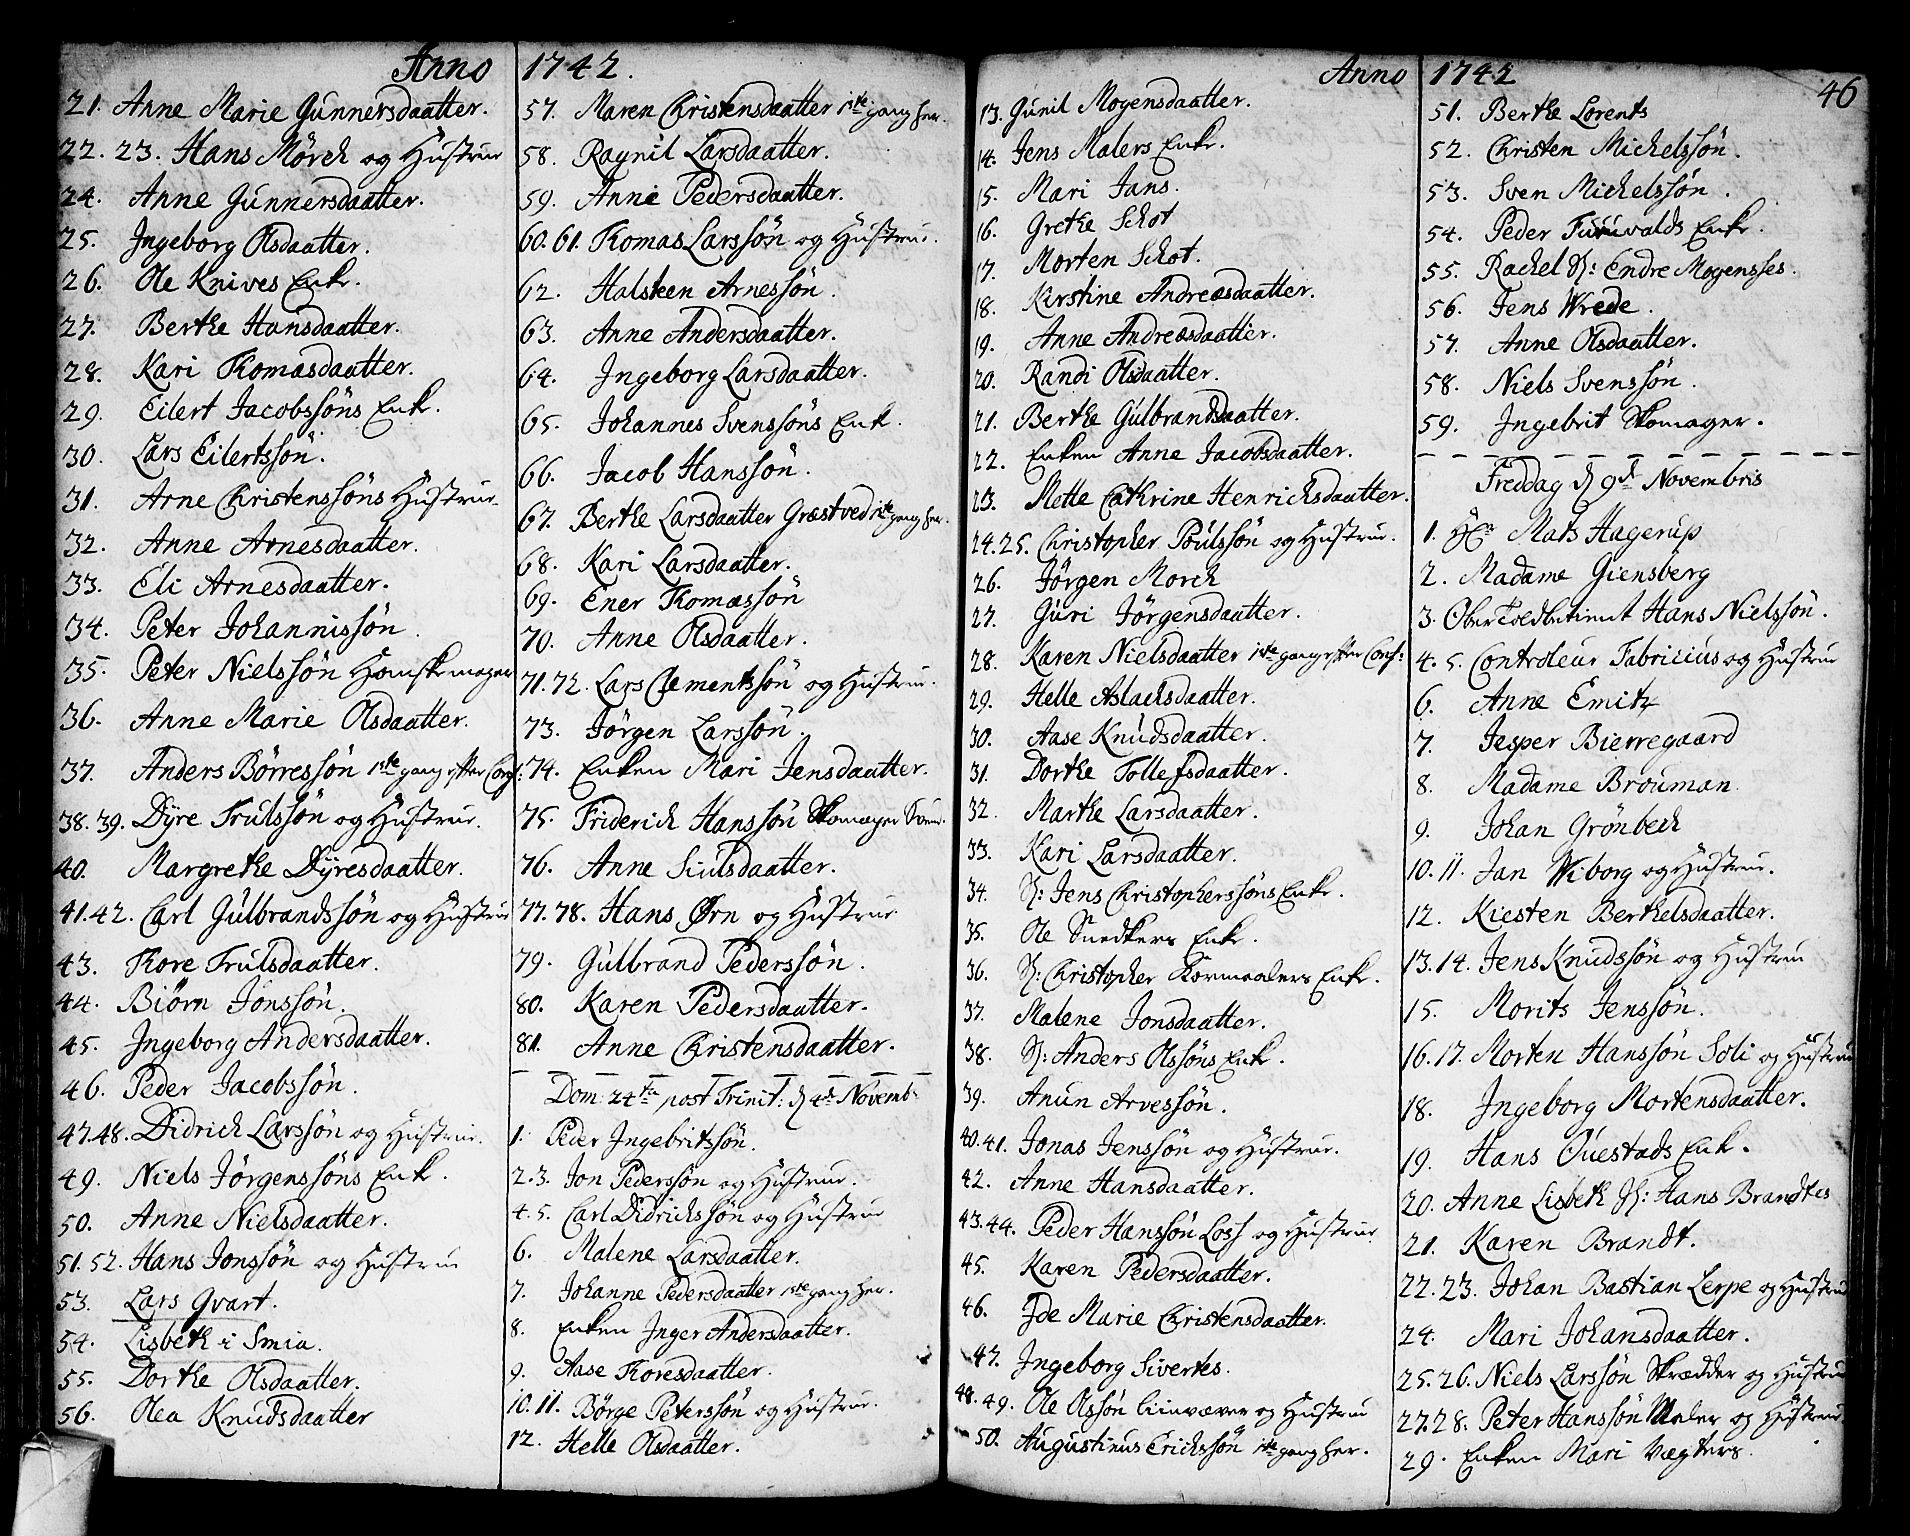 Anno 1742.
21. Anne Marie Gunnersdaatter.
22. 23. Hans Mörch og Hustrue
24. Anne Gunnersdaatter.
25. Ingeborg Olsdaatter.
26. Ole Knives Enke.
27. Berthe Hansdaatter.
28. Kari Thomasdaatter.
29. Eilert Jacobssöns Enke.
30. Lars Eilertssön.
31. Arne Christenssöns Hustrue.
32. Anne Arnesdaatter.
33. Eli Arnesdaatter.
34. Peter Johannissön.
35. Peter Nielssön Handskemager
36. Anne Marie Olsdaatter.
37. Anders Börressön 1ste gang efter Conf:
38. 39. Dyre Trulssön og Hustrue.
40. Margrethe Dyresdaatter.
41. 42. Carl Gulbrandssön og Hustrue
43. Thore Trulsdaatter.
44. Biörn Jonssön.
45. Ingeborg Andersdaatter.
46. Peder Jacobssön.
47. 48. Didrich Larssön og Hustrue.
49. Niels Jörgenssöns Enk.
50. Anne Nielsdaatter.
51. 52. Hans Jonssön og Hustrue
53. Lars Qvart.
54. Lisbeth i Smia.
55. Dorthe Olsdaatter.
56. Olea Knudsdaatter
57. Maren Christensdaatter 1ste gang her.
58. Ragnil Larsdaatter.
59. Anne Pedersdaatter.
60. 61. Thomas Larssön og Hustrue.
62. Halsteen Arnessön.
63. Anne Andersdaatter.
64. Ingeborg Larsdaatter.
65. Johannes Svenssöns Enk.
66. Jacob Hanssön.
67. Berthe Larsdaatter Græstved 1ste gang her.
68. Kari Larsdaatter.
69. Ener Thomassön
70. Anne Olsdaatter.
71. 72. Lars Clementssön og Hustrue.
73. Jörgen Larssön.
74. Enken Mari Jensdaatter.
75. Friderich Hanssön Skomager Svend.
76. Anne Siulsdaatter.
77. 78. Hans Ørn og Hustrue
79. Gulbrand Pederssön.
80. Karen Pedersdaatter.
81. Anne Christensdaatter.
Dom: 24te post Trinit: d 4de Novemb:
1. Peder Ingebritssön.
2. 3. Jon Pederssön og Hustrue.
4. 5. Carl Didrichssön og Hustrue
6. Malene Larsdaatter.
7. Johanne Pedersdaatter 1ste gang her.
8. Enken Inger Andersdaatter.
9. Aase Thoresdaatter.
10. 11. Börge Peterssön og Hustrue.
12. Helle Olsdaatter.
Anno 1742
46
13. Gunil Mogensdaatter.
14. Jens Malers Enke.
15. Mari Jans.
16. Grethe Schot
17. Morten Schot.
18. Kirstine Andreæsdaatter.
19. Anne Andreæsdaatter.
20. Randi Olsdaatter.
21. Berthe Gulbrandsdaatter.
22. Enken Anne Jacobsdaatter.
23. Mette Cathrine Henrichsdaatter.
24. 25. Christopher Poulssön og Hustrue.
26. Jörgen Morch
27. Guri Jörgensdaatter.
28. Karen Nielsdaatter 1ste gang efter Conf:
29. Helle Aslachsdaatter.
30. Aase Knudsdaatter.
31. Dorthe Tollefsdaatter.
32. Marthe Larsdaatter.
33. Kari Larsdaatter.
34. S: Jens Christopherssöns Enke.
35. Ole Snedkers Enke.
36. S: Christopher Kornmaalers Enke.
37. Malene Jonsdaatter.
38. S: Anders Olssöns Enke.
39. Anun Arvessön.
40. 41. Jonas Jenssön og Hustrue.
42. Anne Hansdaatter.
43. 44. Peder Hanssön Loss og Hustrue
45. Karen Pedersdaatter.
46. Ide Marie Christensdaatter.
47. Ingeborg Siverts.
48. 49. Ole Olssön Linvæver og Hustrue
50. Augustinus Erichssön 1ste gang her.
51. Berthe Lorents
52. Christen Michelssön.
53. Sven Michelssön.
54. Peder Furuvalds Enke.
55. Rachel S: Endre Mogensses.
56. Jens Wrede.
57. Anne Olsdaatter.
58. Niels Svenssön.
59. Ingebrit Skomager.
Freddag d 9de Novembris
1. Hr Mats Hagerup
2. Madame Giensberg
3. Ober Toldbetient Hans Nielssön.
4. 5. Controleur Fabricius og Hustrue
6. Anne Emitz
7. Jesper Bierregaard
8. Madame Brouman.
9. Johan Grönbech
10. 11. Jan Wiborg og Hustrue.
12. Kiesten Berthelsdaatter.
13. 14. Jens Knudssön og Hustrue
15. Morits Jenssön.
16. 17. Morten Hanssön Soli og Hustrue
18. Ingeborg Mortensdaatter.
19. Hans Øuestads Enk.
20. Anne Lisbeth S: Hans Brandtes
21. Karen Brandt.
22. 23. Johan Bastian Lerpe og Hustrue
24. Mari Johansdaatter.
25. 26. Niels Larssön Skrædder og Hustrue
27. 28. Peter Hanssön Maler og Hustrue
29. Enken Mari Vægters.